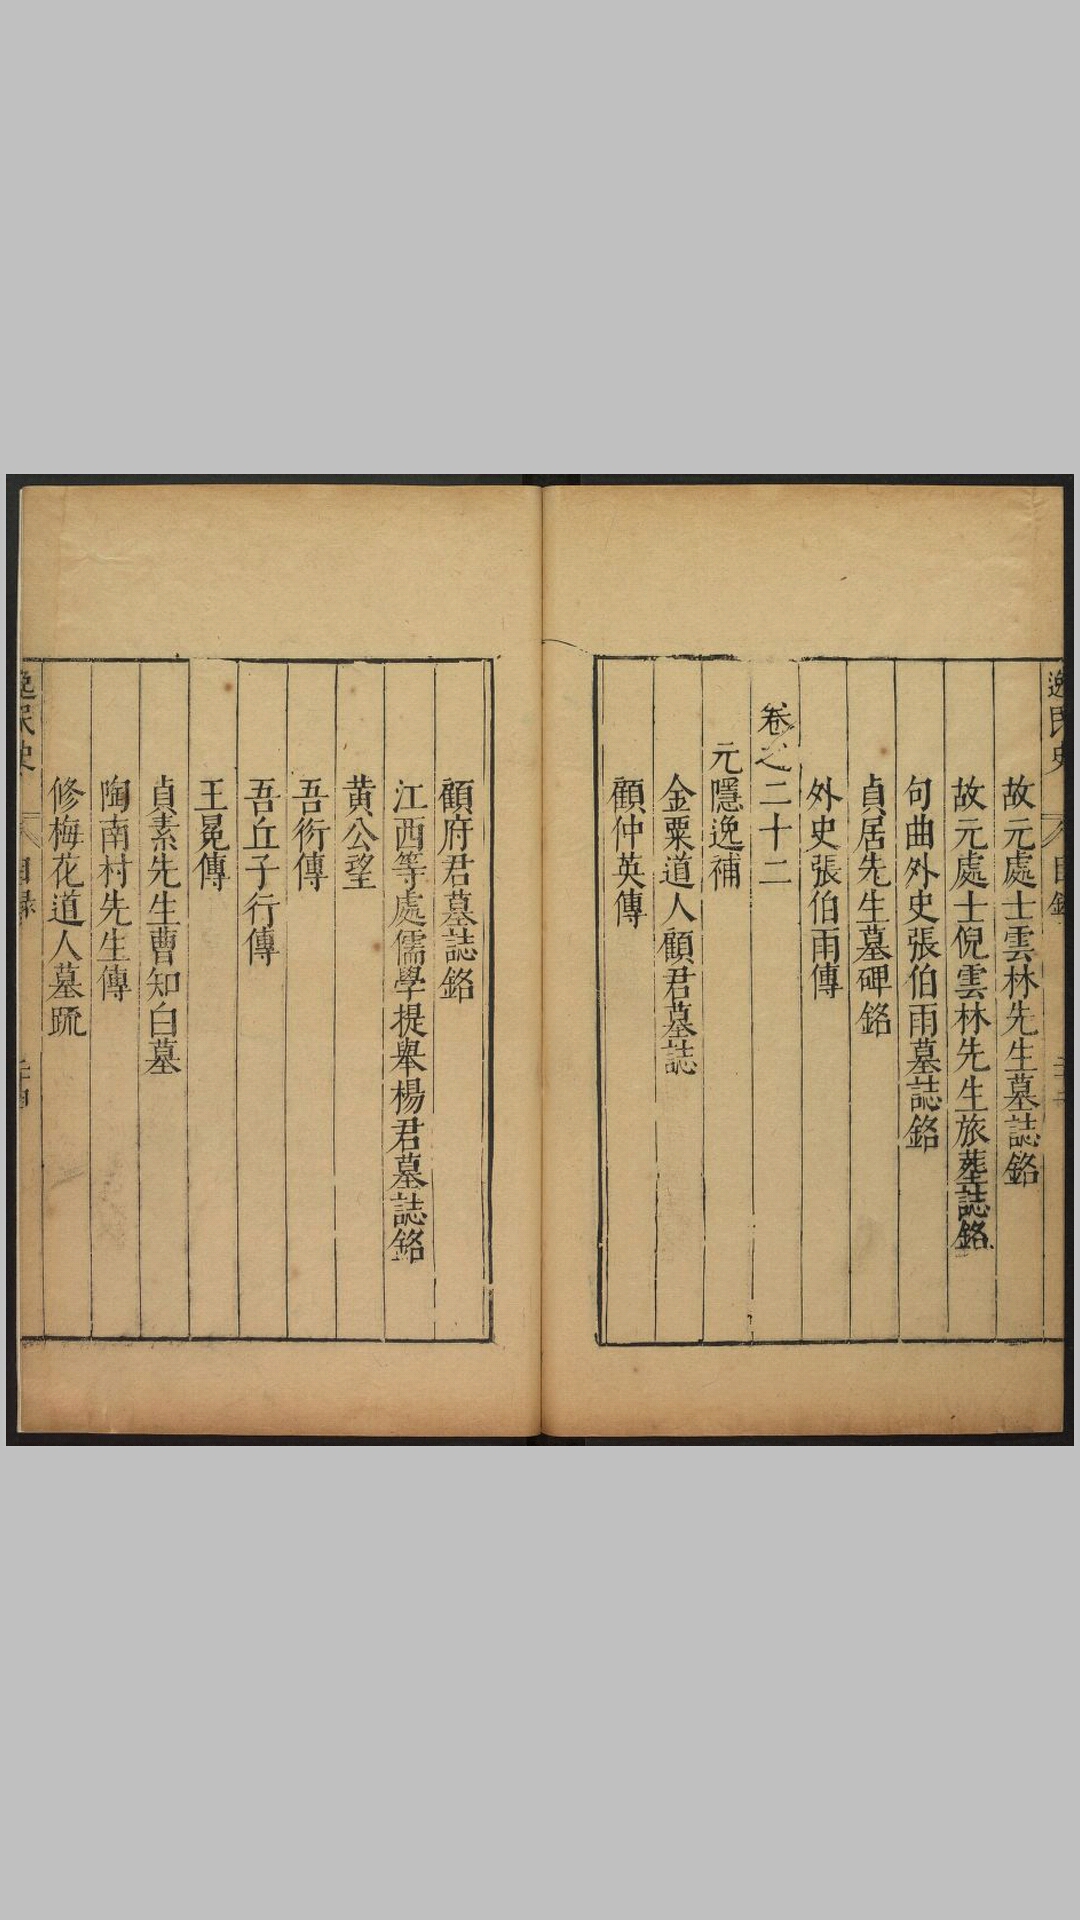 逸民史
目錄
故元處士雲林先生墓誌銘
故元處士倪雲林先生旅葬誌銘
句曲外史張伯雨墓誌銘
貞居先生墓碑銘
外史張伯雨傳
卷之二十二
元隱逸補
金粟道人顧君墓誌
顧仲英傳
顧府君墓誌銘
江西等處儒學提舉楊君墓誌銘
黄公望
吾衍傳
吾丘子行傳
王冕傳
貞素先生曹知白墓
陶南村先生傳
修梅花道人墓䟽
逸民史
目録